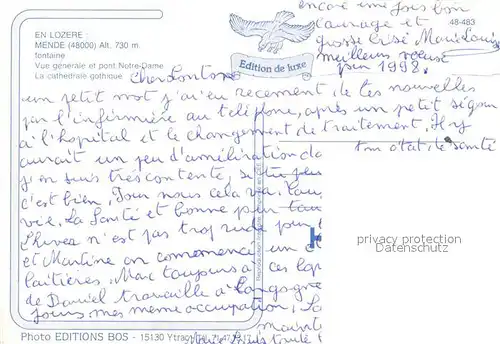 EN LOZERE :
MENDE (48000) Alt. 730 m.
fontaine
Vue générale et pont Notre-Dame
La cathédrale gothique
48-483
Edition de luxe
encore une fois bon
courage et
grosse bise Marie Louise
meilleurs voeux
pour 1998.
un petit mot j'ai eu recement, de tes nouvelles
par l'infirmière au téléphone, après un petit séjour
à l'hopital et le changement de traitement. Il y
aurait un peu d'amélioration da
ton état de santé
j'en suis très contente, si tu peu
c'est bien. Pour nous cela va.
vie. La Santé et bonne pour
L'hiver n'est pas trop rude pour
et Martine on commencé un
laitières. Marc toujours à ces lap
de Daniel travaille à Langogne
jours mes même occupation.
mainte
toute
privacy protection
Datenschutz
Photo EDITIONS BOS - 15130 Ytrac